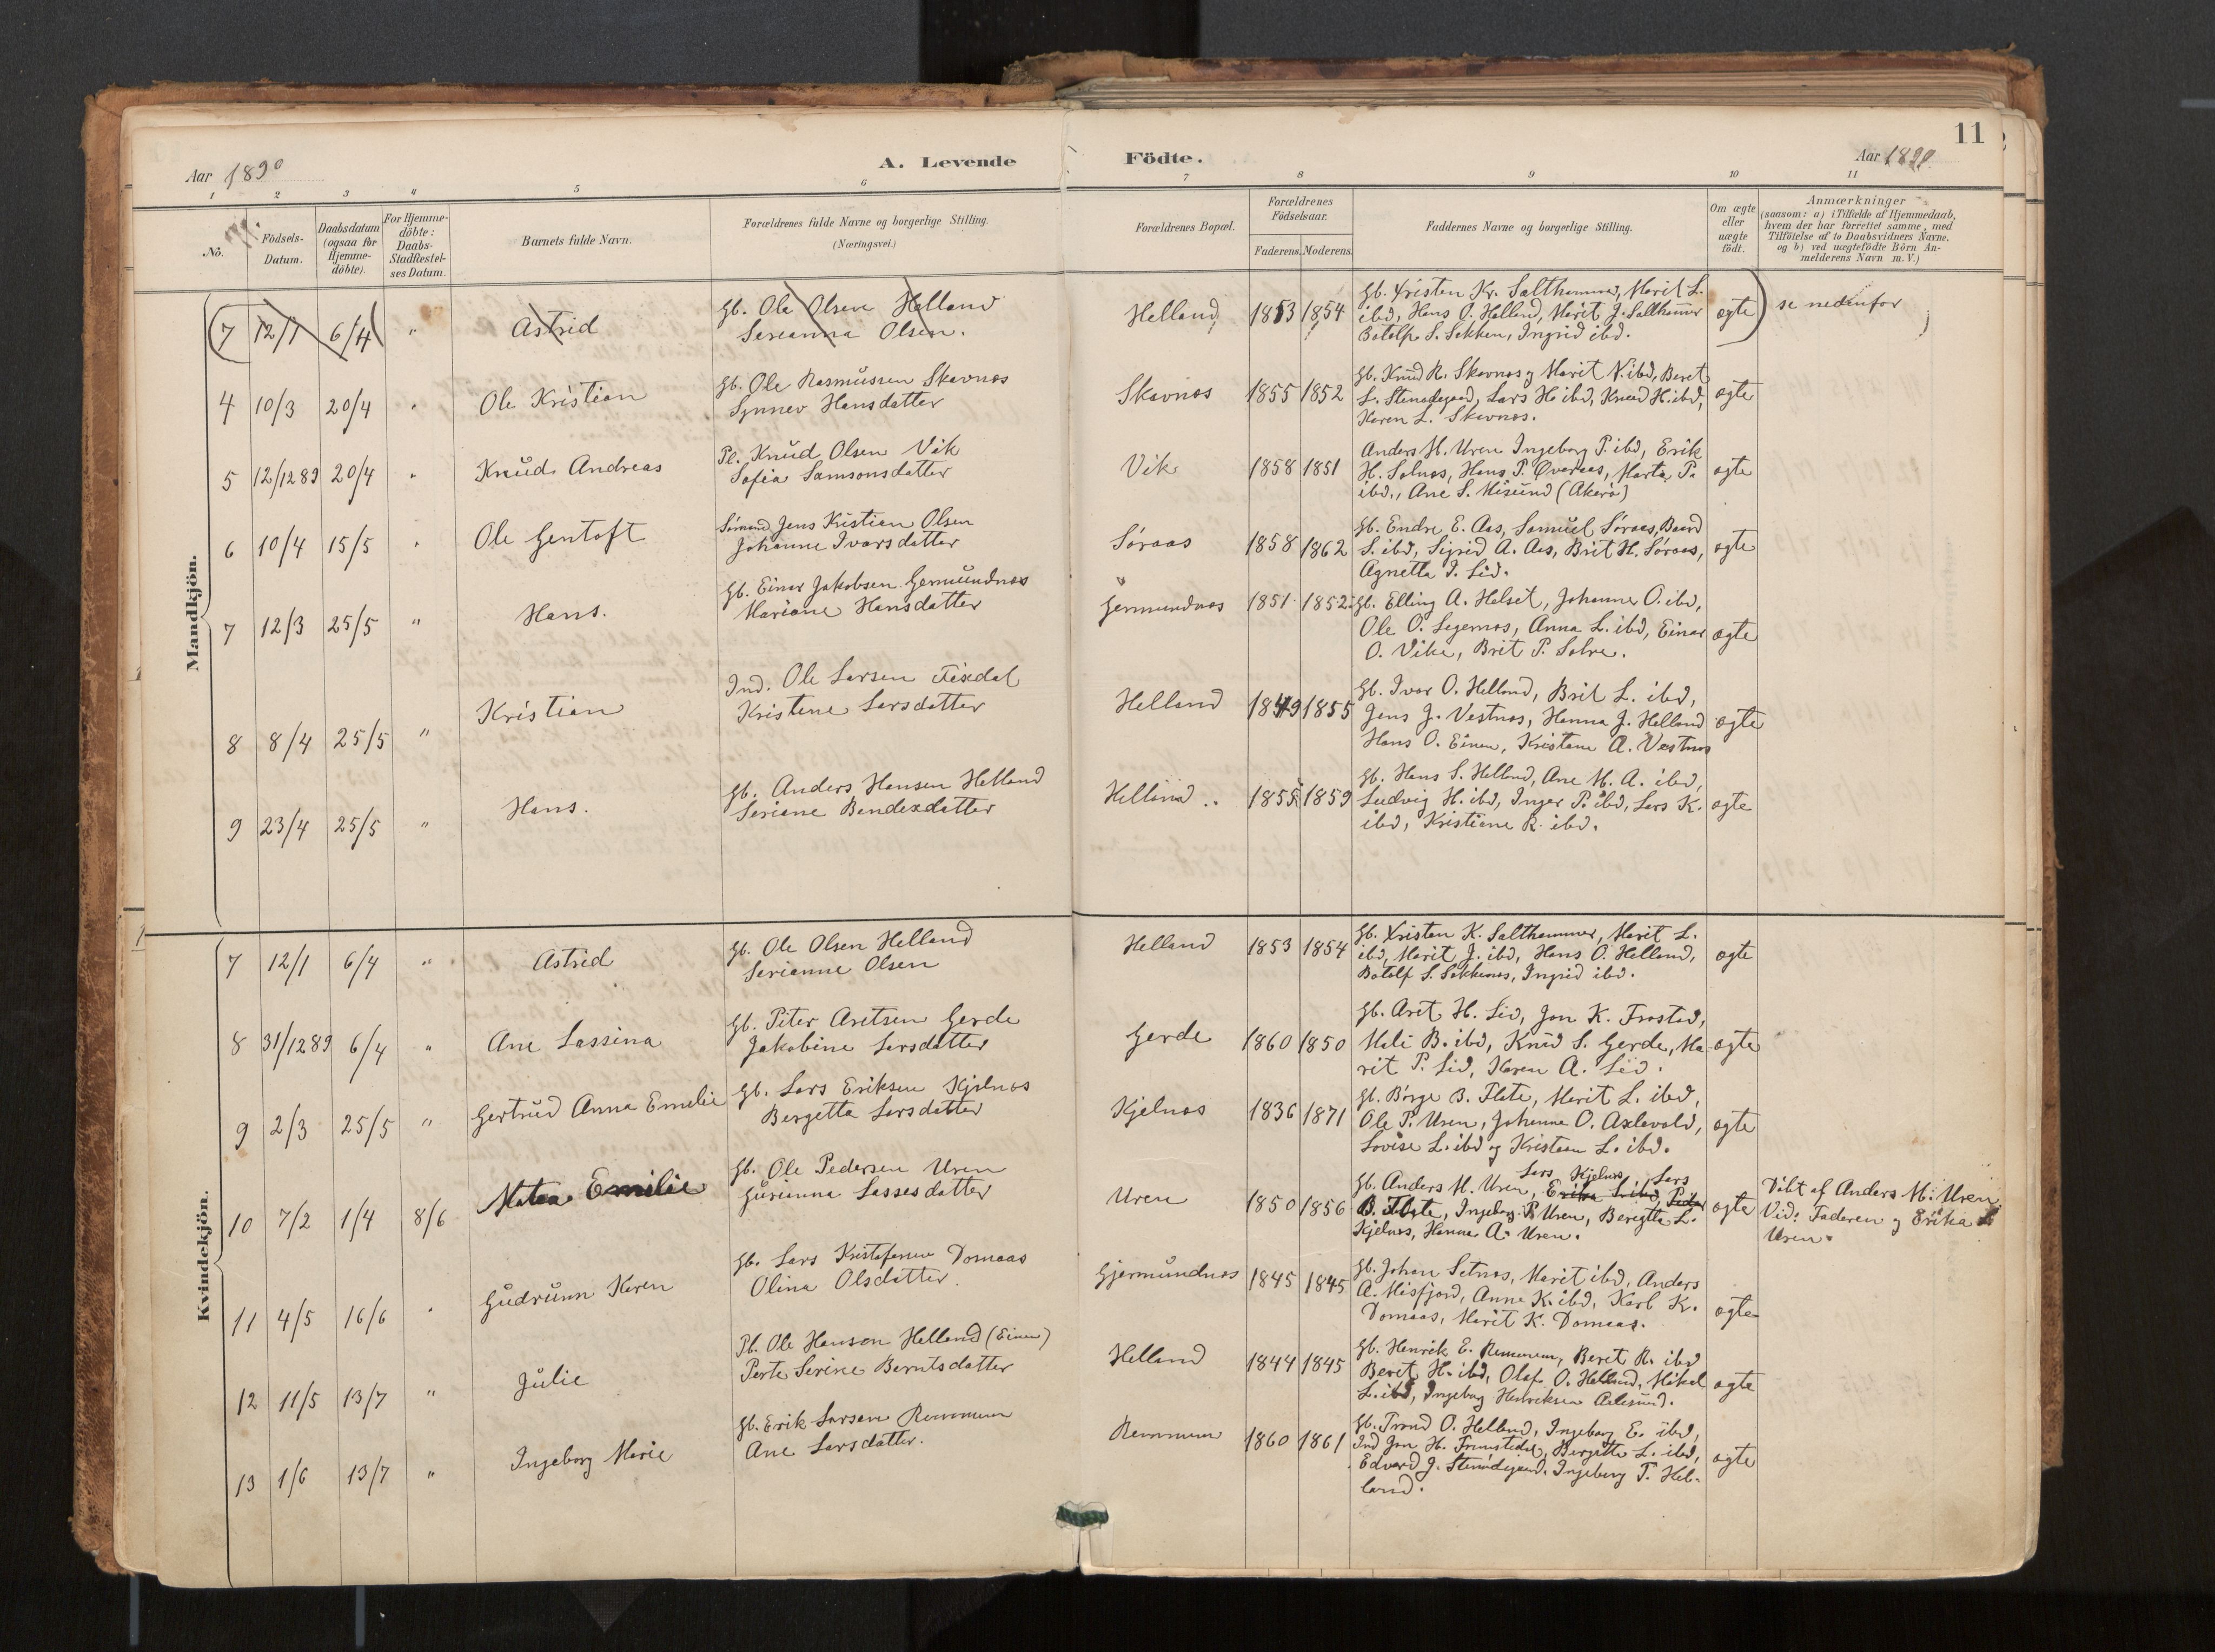 11
Aar 1890
A. Levende Födte.
Aar 1890
1 2 3 4 5 6 7 8 9 10 11
No.
Födsels-
Datum.
Daabsdatum
(ogsaa for
Hjemme-
döbte).
For Hjemme-
döbte:
Daabs-
Stadfæstel-
ses Datum.
Barnets fulde Navn.
Forældrenes fulde Navne og borgerlige Stilling.
(Næringsvei.)
Forældrenes Bopæl.
Forældrenes
Födselsaar.
Faderens. Moderens.
Faddernes Navne og borgerlige Stilling.
Om ægte
eller
uægte
födt.
Anmærkninger
(saasom: a) i Tilfælde af Hjemmedaab,
hvem der har forrettet samme, med
Tilföielse af to Daabsvidners Navne,
og b) ved uægtefödte Börn An-
melderens Navn m. V.)
Mandkjön.
7 12/1 6/4 " Astrid
Gb. Ole Olsen Helland
Serianna Olsen.
Helland 1853 1854
Gb. Kristen Kr. Salthammer, Marit L.
ibd, Hans O. Helland, Marit J. Salthammer
Botolf S. Sekken, Ingrid ibd.
ægte
se nedenfor
4 10/3 20/4 " Ole Kristian
Gb. Ole Rasmussen Skavnes
Synnev Hansdatter
Skavnæs 1855 1852
Gb. Knud R. Skavnæs og Marit N. ibd, Beret
L. Stenødegaard, Lars H. ibd, Knud H. ibd,
Karen L. Skavnæs.
ægte
5 12/12 89 20/4 " Knud Andreas
Pl. Knud Olsen Vik
Sofia Samsonsdatter
Vik 1858 1851
Anders M. Uren Ingeborg P. ibd, Erik
H. Solnæs, Hans P. Øveraas, Marta P.
ibd., Ane S. Misund (Akerö)
ægte
6 10/4 15/5 " Ole Gentoft
Sömand Jens Kristian Olsen
Johanne Ivarsdatter
Söraas 1858 1862
Gb. Endre E. Aas, Samuel Söraas, Baard
S. ibd, Sigrid A. Aas, Brit H. Söraas,
Agnetta I. Lid.
ægte
7 12/3 25/5 " Hans.
Gb. Einar Jakobsen Germundnæs
Mariane Hansdatter
Germundnæs 1851 1852
Gb. Elling A. Helset, Johanne O. ibd,
Ole O. Legernæs, Anna L. ibd, Einar
O. Vike, Brit P. Salve.
ægte
8 8/4 25/5 " Kristian
Ind. Ole Larsen Fixdal
Kristine Larsdatter
Helland 1849 1855
Gb. Ivar O. Helland, Brit L. ibd,
Jens J. Vestnæs, Hanna J. Helland
Hans O. Einen, Kristane A. Vestnæs
ægte
9 23/4 25/5 " Hans.
Gb. Anders Hansen Helland
Seriane Bendixdatter
Helland 1855 1859
Gb. Hans S. Helland, Ane M. A. ibd,
Ludvig H. ibd, Inger P. ibd, Lars K.
ibd, Kristiane R. ibd.
ægte
Kvindekjön.
7 12/1 6/4 " Astrid
Gb. Ole Olsen Helland
Serianne Olsen
Helland 1853 1854
Gb. Kristen K. Salthammer, Marit L.
ibd, Marit J. ibd, Hans O. Helland,
Botolf S. Sekkenes, Ingrid ibd.
ægte
8 31/12 89 6/4 " Ane Lassina
Gb. Peter Aretsen Gerde
Jakobine Larsdatter
Gerde 1860 1850
Gb. Aret H. Lid, Jon K. Frostad,
Mali B. ibd, Knud S. Gerde, Ma-
rit P. Lid, Karen A. Lid.
ægte
9 2/3 25/5 " Gertrud Anna Emelie
Gb. Lars Eriksen Kjelnæs
Bergetta Larsdatter
Kjelnæs 1836 1871
Gb. Börge B. Flate, Marit L. ibd,
Ole P. Uren, Johanne O. Axlevold,
Lovise L. ibd og Kristean L. ibd.
ægte
10 7/2 1/4 8/6 Matea Emilie
Gb. Ole Pedersen Uren
Gurianna Lassesdatter
Uren 1850 1856
Lars Kjelnæs, Lars
Gb. Anders M. Uren, Erika L. ibd, Peder
B. Flate, Ingeborg P. Uren, Beregtta L.
Kjelnæs, Hanna A. Uren.
ægte
Döbt af Anders M. Uren
Vid: Faderen og Erika L
Uren.
11 4/5 16/6 " Gudrunn Karen
Gb. Lars Kristofersen Domaas
Olina Olsdatter.
Gjermundnæs 1845 1845
Gb. Johan Setnæs, Marit ibd, Anders
A. Misfjord, Anne K. ibd, Karl K.
Domaas, Marit K. Domaas.
ægte
12 11/5 13/7 " Julie
Pl. Ole Hanson Helland (Einen)
Perte Serine Berntsdatter
Helland 1844 1845
Gb. Henrik E. Remmem, Beret R. ibd
Beret H. ibd, Olaf O. Helland, Mikal
L. ibd, Ingeborg Henriksen Aalesund.
ægte
13 1/6 13/7 " Ingeborg Marie
Gb. Erik Larsen Remmem
Ane Larsdatter.
Remmem 1860 1861
Gb. Trond O. Helland, Ingeborg E. ibd,
Ind Jon H. Frammstedal, Bergitte L. ibd,
Edvard J. Stenødegaard, Ingeborg T. Hel-
land.
ægte